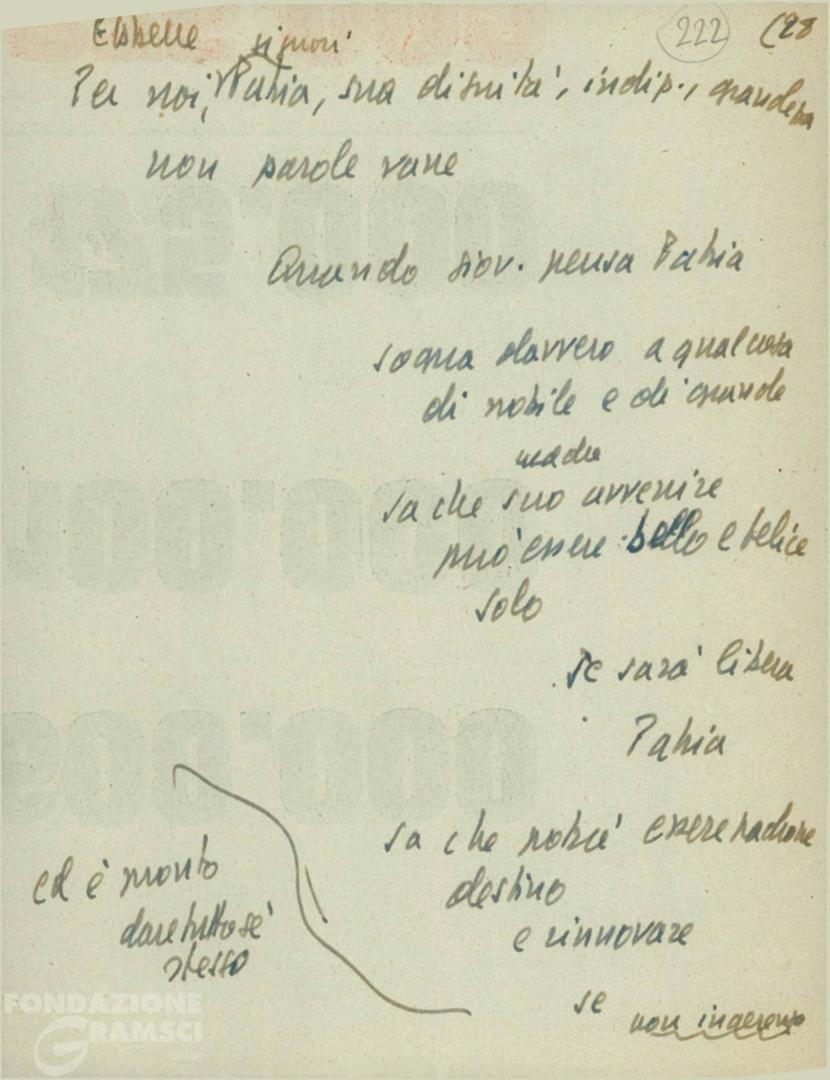 Ebbene signori
222 (28
Per noi, Patria, sua dignità, indip., grandezza
non parole vane
Quando giov. pensa Patria
sogna davvero a qualcosa
di nobile e di grande
sa che suo avvenire
può essere bello e felice
solo
se sarà libera
Patria
sa che potrà essere padrone
destino
e rinnovare
se non ingerenze
ed è pronto
dare tutto sé
stesso
FONDAZIONE
GRAMSCI
online